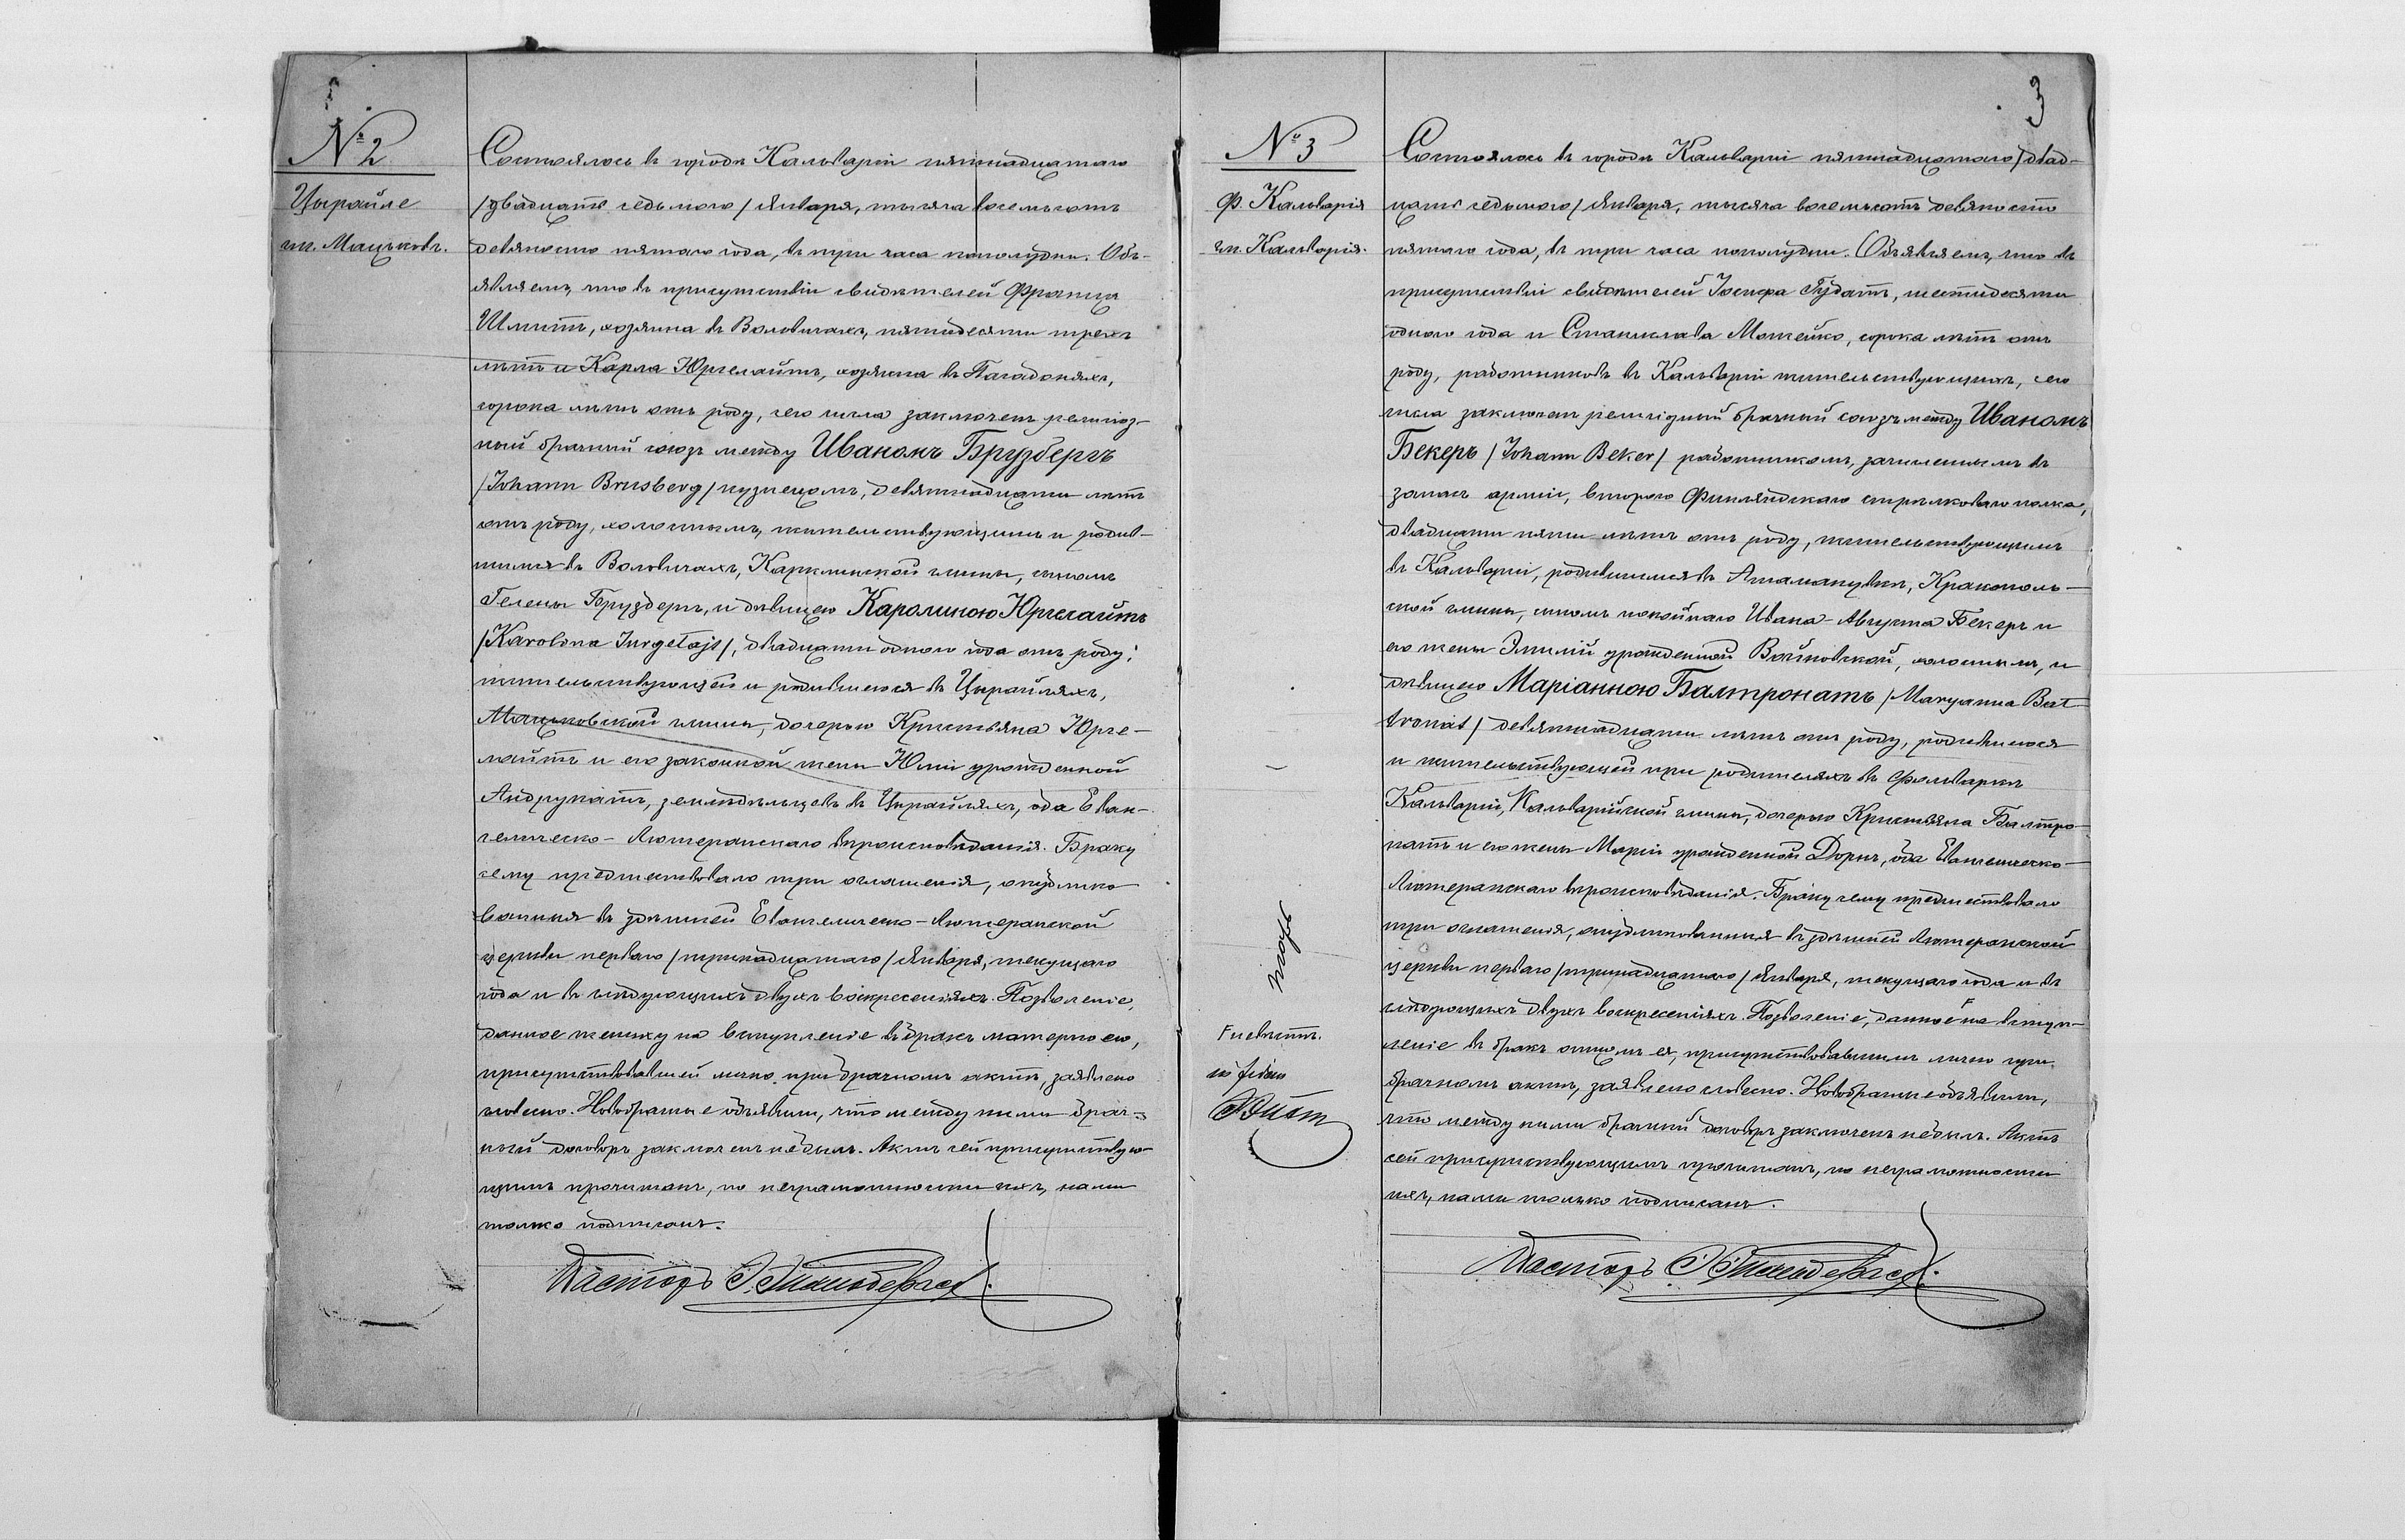 № 2
Цырайле
гм. Мацьковъ.
Состоялось въ городѣ Кальваріи пятнадцатаго
/двадцать седьмого/ Января, тысяча восемьсотъ
девяносто пятаго года, въ три часа пополудни. Объ-
являемъ, что въ присутствіи свидѣтелей Франца
Шмитъ, хозяина въ Воловичахъ, пятидесяти трехъ
лѣтъ и Карла Юргелайтъ, хозяина въ
сорока лѣтъ отъ роду, сего числа заключенъ религіоз-
ный брачный союзъ между Иваномъ Брузбергъ
/Johann Brusberg/ кузнецомъ, девятнадцати лѣтъ
отъ роду, холостымъ, жительствующимъ и родив-
шимся въ Воловичахъ, гмины, сыномъ
Гелены Брузбергъ, и дѣвицею Каролиною Юргелайтъ
/Karolina Jurgelajt/, двадцати одного года отъ роду,
жительствующей и родившеюся въ Цырайляхъ,
Мацьковской гмины, дочерью Кристьяна Юрге-
лайтъ и его законной жены Юліи урожденной
Андрукатъ, земледѣльцевъ въ Цырайляхъ, оба Еван-
гелическо-Лютеранскаго вѣроисповѣданія. Браку
сему предшествовало три оглашенія, опублико
ванныя въ здѣшней Евангелическо-Лютеранской
церкви перваго /тринадцатаго/ Января, текущаго
года и въ слѣдующихъ двухъ воскресеніяхъ. Позволеніе,
данное жениху на вступленіе въ бракъ матерью его,
присутствовавшей лично при брачномъ актѣ, заявлено
словесно. Новобрачные объявили, что между ними брач-
ный договоръ заключенъ не былъ. Актъ сей присутствую-
щимъ прочитанъ, по неграмотности ихъ, нами
только подписанъ.
Пасторъ
3
№ 3
Ф. Кальварія
гм. Кальварія.
Состоялось въ городѣ Кальваріи пятнадцатаго /двад-
цать седьмого/ Января, тысяча восемьсотъ девяносто
пятаго года, въ три часа пополудни. Объявляемъ, что въ
присутствіи свидѣтелей Іосифа Гудатъ, шестидесяти
одного года и Станислава Можейко, сорока лѣтъ отъ
роду, работниковъ въ Кальваріи жительствующихъ, сего
числа заключенъ религіозный брачный союзъ между Иваномъ
Бекеръ /Johann Beker/ работникомъ, зачисленнымъ въ
запасъ арміи, второго Финляндскаго стрѣлковаго полка,
двадцати пяти лѣтъ отъ роду, жительствующимъ
въ Кальваріи, родившимся въ Атамановкѣ, Краснополь-
ской гмины, сыномъ покойнаго Ивана-Августа Бекеръ и
его жены Эмиліи урожденной Войновской, холостымъ, и
дѣвицею Маріанною Балтронатъ /Maryanna Bal
tronat/ девятнадцати лѣтъ отъ роду, родившеюся
и жительствующей при родителяхъ въ Фольваркѣ
Кальваріи, Кальварійской гмины, дочерью Кристьяна Балтро-
натъ и его жены Маріи урожденной Дорнъ, оба Евангелическо-
Лютеранскаго вѣроисповѣданія. Браку сему предшествовало
три оглашенія, опубликованныя въ здѣшней Лютеранской
церкви перваго /тринадцатаго/ Января, текущаго года и въ
слѣдующихъ двухъ воскресеніяхъ. Позволеніе, данное на вступ-
леніе въ бракъ отцомъ ея, присутствовавшимъ лично при
брачномъ актѣ, заявлено словесно. Новобрачные объявили,
что между ними брачный договоръ заключенъ не былъ. Актъ
сей присутствующимъ прочитанъ, по неграмотности
ихъ, нами только подписанъ.
Пасторъ
невѣстѣ.